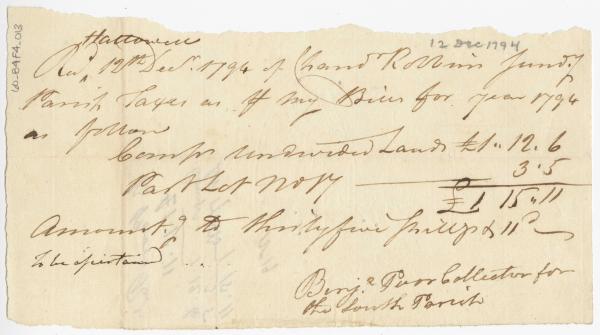 Hallowell
Recd 12th Decr. 1794 of Chand Robbins Sundry
Parish Taxes as pr my Bills for year 1794
as follow
Comps undivided Lands £1„12.6
Part Lot No 17 3.5
£1 15„11
Amountg to thirtyfive shills & 11d
to be
Benja Poor Collector for
the South Parish
12 Dec 1794
60-84F4.013